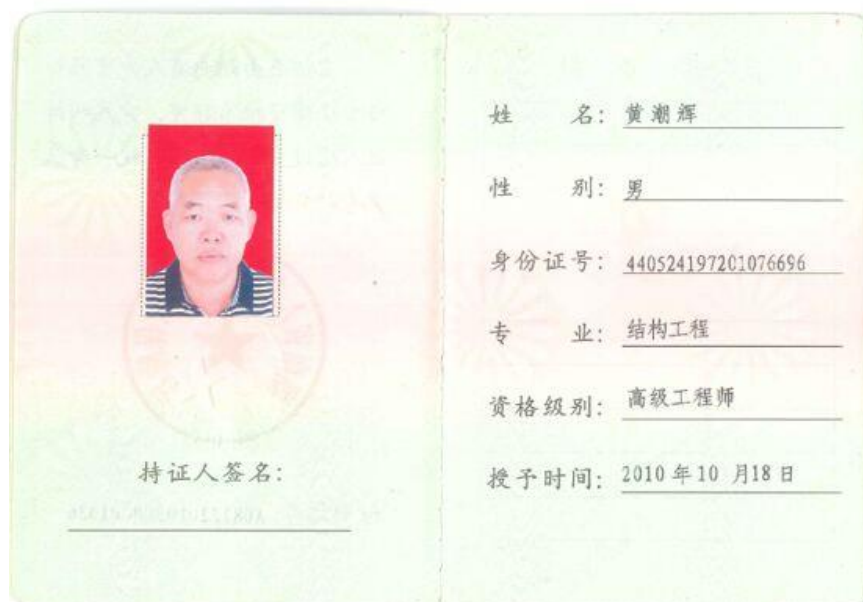 姓 名：黄潮辉
性 别：男
身份证号：440524197201076696
专 业：结构工程
资格级别：高级工程师
授予时间：2010年10 月18日
持证人签名：